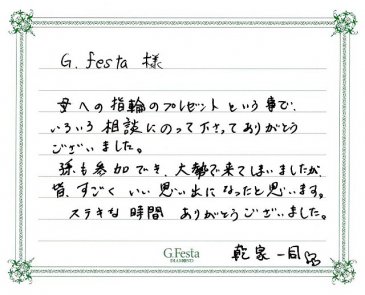 G. festa 様
母への指輪のプレゼントという事で、
いろいろ相談にのって下さってありがとう
ございました。
孫も参加でき、大勢で来てしまいましたが、
皆、すごくいい思い出になったと思います。
ステキな時間 ありがとうございました。
乾家一同
G.Festa
DIAMOND